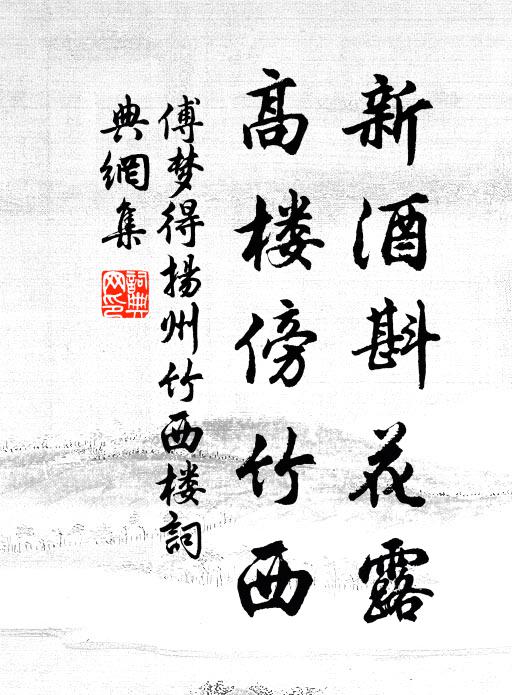 新酒斟花露
高楼傍竹西
傅梦得揚州竹西楼詞
典網集
詞典网印